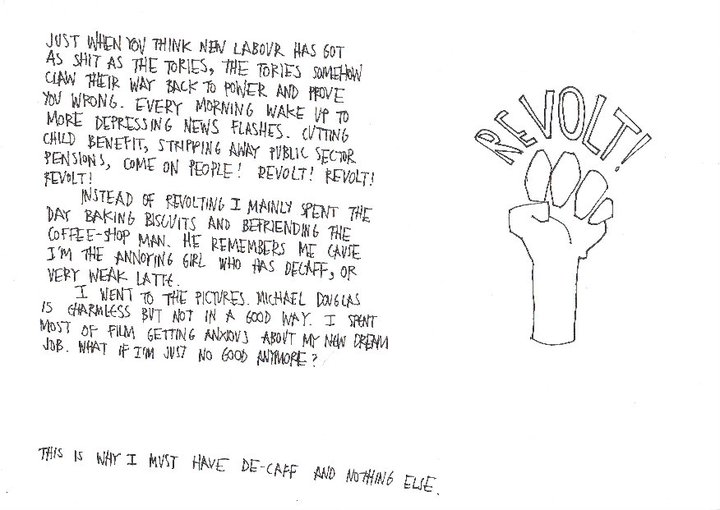 JUST WHEN YOU THINK NEW LABOUR HAS GOT
AS SHIT AS THE TORIES, THE TORIES SOMEHOW
CLAW THEIR WAY BACK TO POWER AND PROVE
YOU WRONG. EVERY MORNING WAKE UP TO
MORE DEPRESSING NEWS FLASHES. CUTTING
CHILD BENEFIT, STRIPPING AWAY PUBLIC SECTOR
PENSIONS, COME ON PEOPLE! REVOLT! REVOLT!
REVOLT!
INSTEAD OF REVOLTING I MAINLY SPENT THE
DAY BAKING BISCUITS AND BEFRIENDING THE
COFFEE-SHOP MAN. HE REMEMBERS ME CAUSE
I'M THE ANNOYING GIRL WHO HAS DECAFF, OR
VERY WEAK LATTE.
I WENT TO THE PICTURES. MICHAEL DOUGLAS
IS CHARMLESS BUT NOT IN A GOOD WAY. I SPENT
MOST OF FILM GETTING ANXIOUS ABOUT MY NEW DREAM
JOB. WHAT IF I'M JUST NO GOOD ANYMORE?
REVOLT!
THIS IS WHY I MUST HAVE DE-CAFF AND NOTHING ELSE.